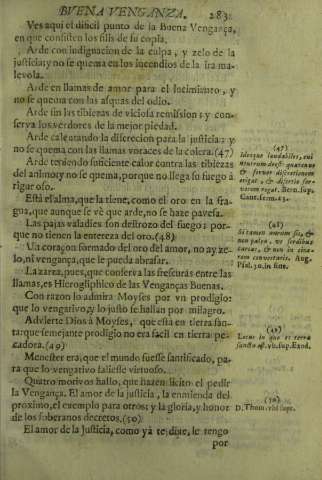 BUENA VENGANZA. 283
Ves aqui el dificil punto de la Buena Vengança,
en que consisten los fills de su copla.
Arde con indignacion de la culpa, y zelo de la
justicia: y no se quema en los incendios de la ira ma-
levola.
Arde en llamas de amor para el lucimiento, y
no se quema con las asquas del odio.
Arde sin las tibiezas de viciosa remission: y con-
serva los verdores de la mejor piedad.
Arde calentando la discrecion para la justicia: y
no se quema con llamas voraces de la colera. (47)
Arde teniendo suficiente calor contra las tibiezas
del animo: y no se quema, porque no llega so fuego à
rigoroso.
Està el alma, que la tiene, como el oro en la fra-
gua, que aunque se vè que arde, no se haze pavesa.
Las pajas valadies son destrozo del fuego: por-
que no tienen la entereza del oro. (48)
Un coraçon formado del oro del amor, no ay ze-
lo, ni vengança, que le pueda abrasar.
La zarza, pues, que conserva las frescuras entre las
llamas, es Hieroglifico de las Venganças Buenas.
Con razon lo admira Moyses por un prodigio:
que lo vengativo, y lo justo se hallan por milagro.
Advierte Dios à Moyses, que està en tierra san-
ta: que semejante prodigio no era facil en tierra pe-
cadora. (49)
Menester era, que el mundo fuesse santificado, pa-
ra que lo vengativo saliesse virtuoso.
Quatro motivos hallo, que hazen licito el pedir
la Vengança. El amor de la justicia, la enmienda del
proximo, el exemplo para otros: y la gloria, y honor
de los soberanos decretos. (50)
El amor de la Justicia, como yà te dixe, le tengo
por
(47)
Idesque laudabiles, cui
neutrum deest: quatenus
& fervor discretionem
erigat, & discretio fer-
vorem regat. Bern. sup.
Cant. serm. 23.
(48)
Si tamen aurum sis, &
non palea, ut sordibus
careas, & non in cine-
rem convertaris. Aug.
Psal. 30. in fine.
(49)
Locus in quo es terra
sancta est. ubi sup. Exod.
(50)
D. Thom. ubi supr.